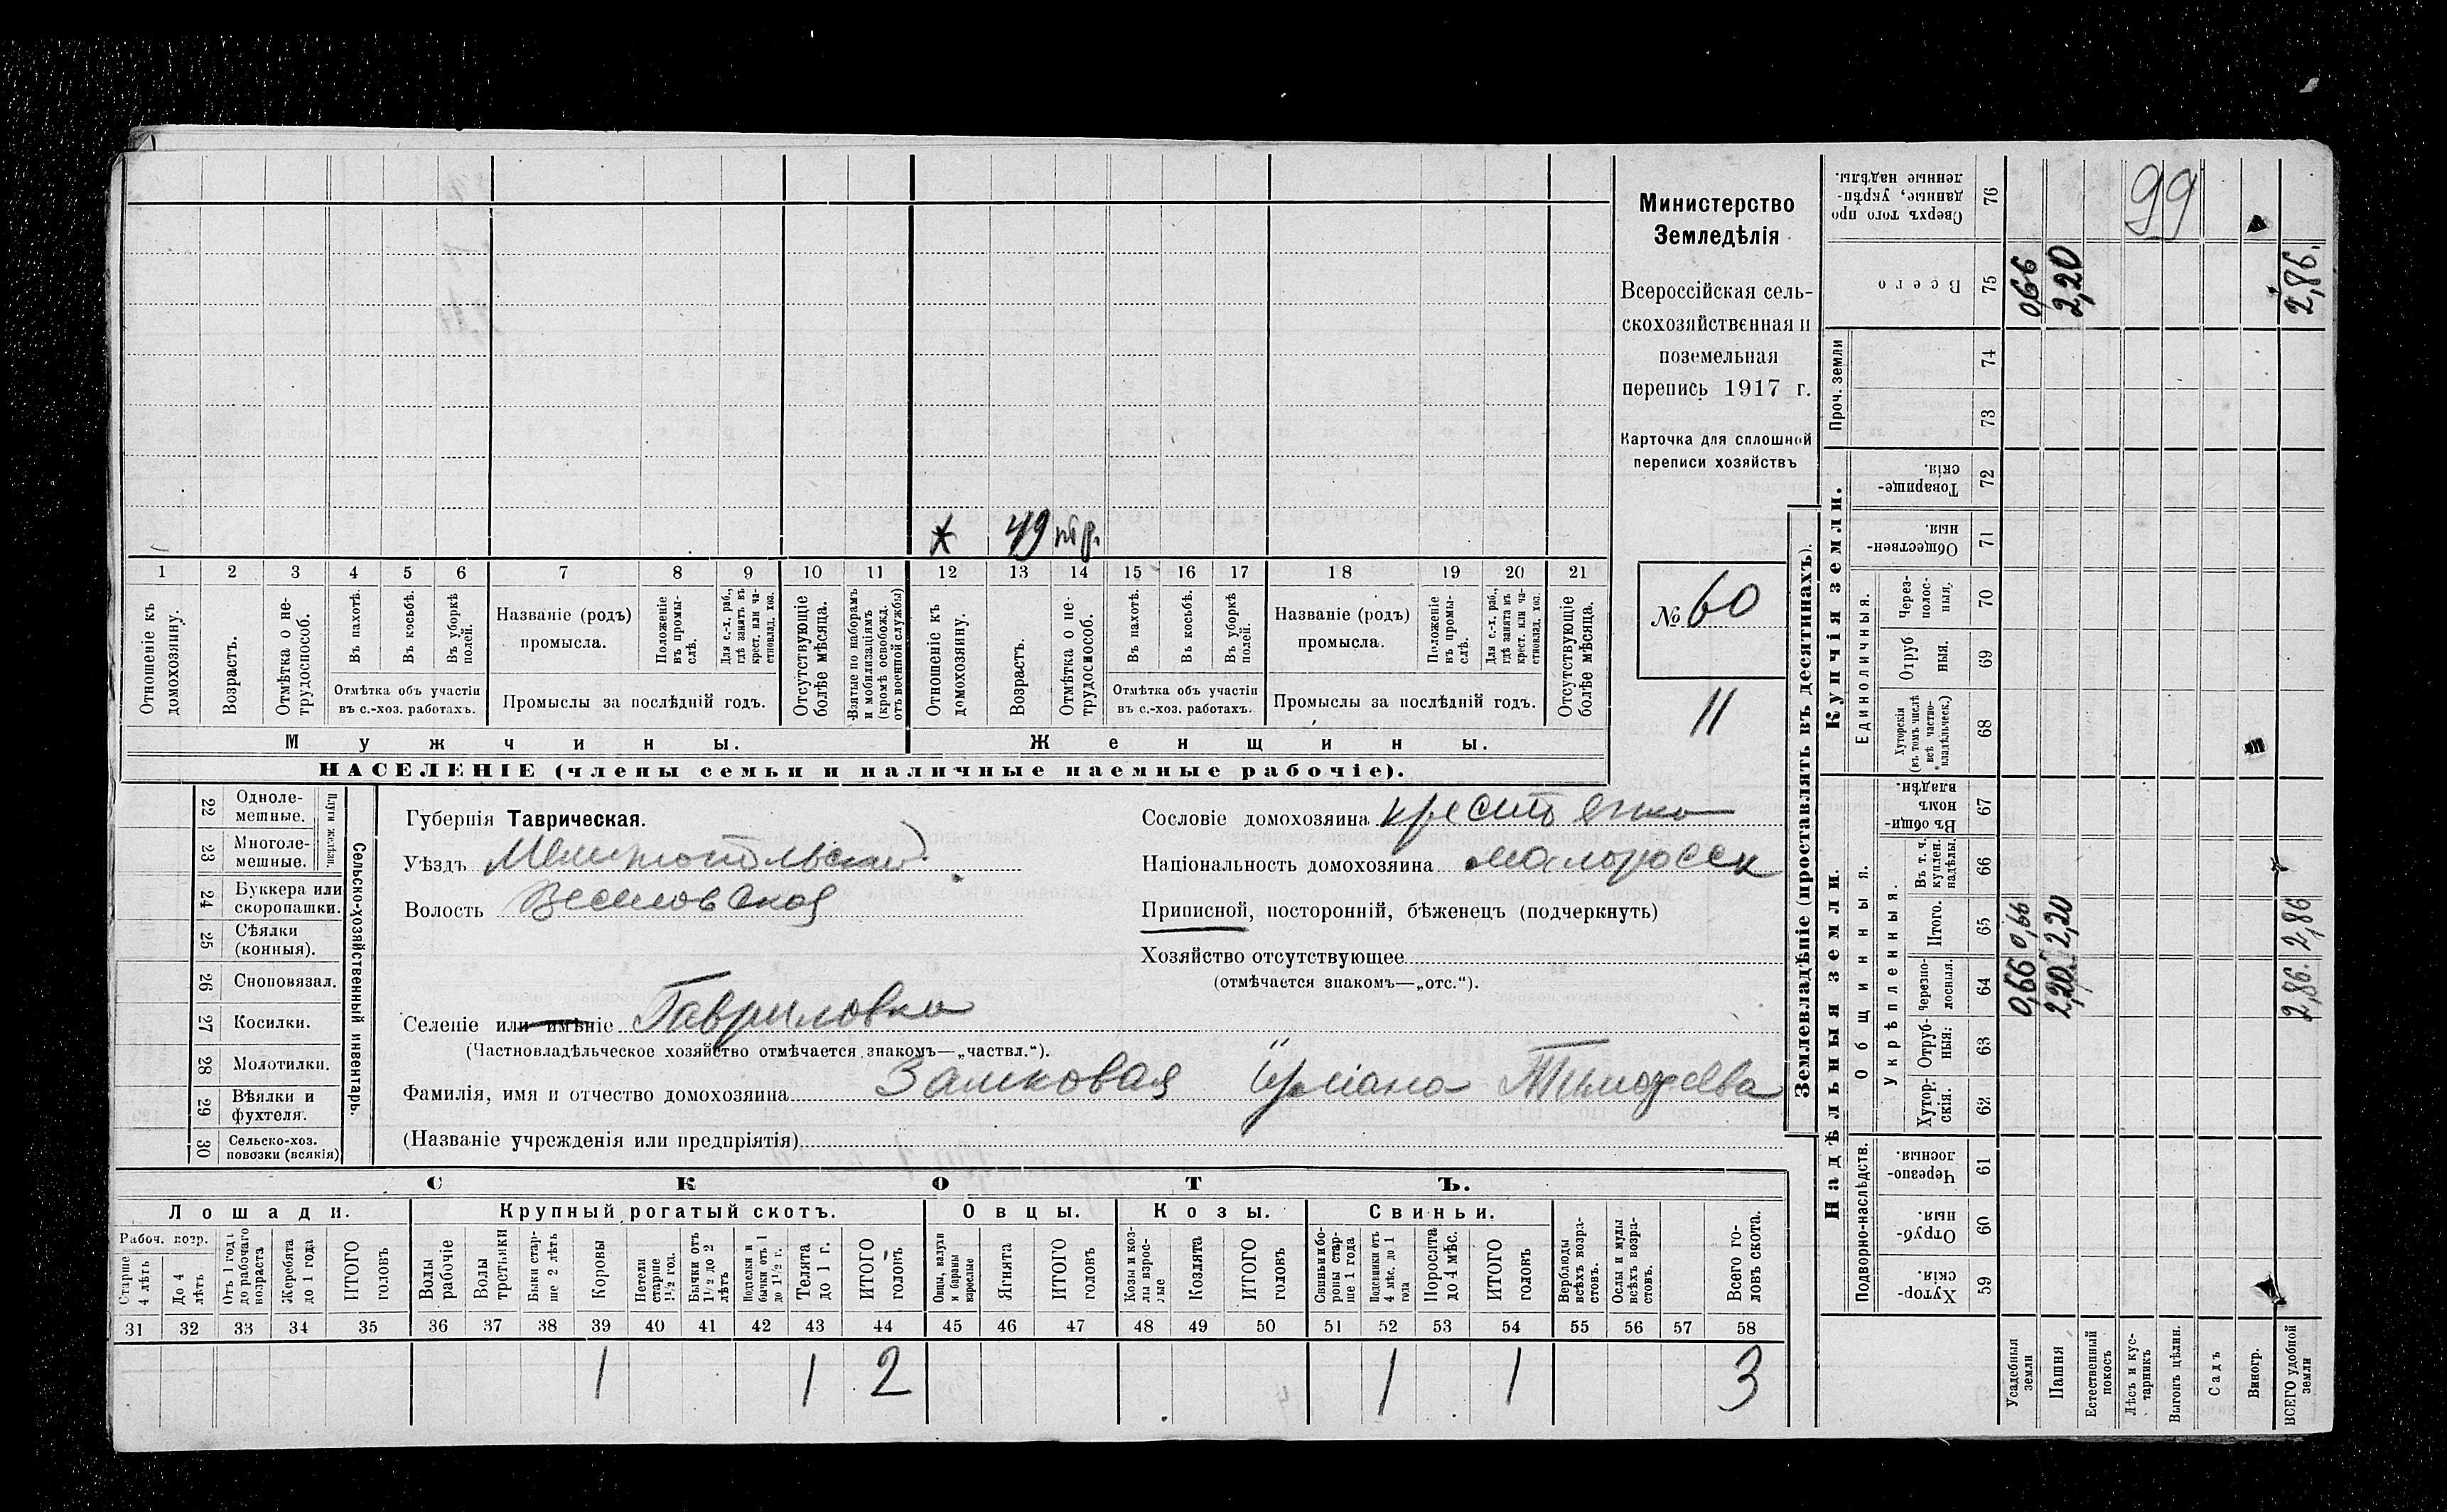 99
Министерство
Земледѣлія
Всероссійская сель-
скохозяйственная и
поземельная
перепись 1917 г.
Карточка для сплошной
переписи хозяйствъ
№ 60
11
* 49
1 2 3 4 5 6 7 8 9 10 11 12 13 14 15 16 17 18 19 20 21
Отношеніе къ домохозяину.
Возрастъ.
Отмѣтка о не-трудоспособ.
Въ пахотѣ.
Въ косьбѣ.
Въ уборкѣ полей.
Отмѣтка объ участіи
въ с.-хоз. работахъ.
Названіе (родъ)
промысла.
Положеніе въ промы-слѣ.
Для с.-х. раб., гдѣ занятъ въ крест. или ча-стновлад. хоз.
Промыслы за послѣдній годъ.
Отсутствующіе болѣе мѣсяца.
Взятые по наборамъ и мобилизаціямъ (кромѣ освобожд. отъ военной службы)
Отношеніе къ домохозяину.
Возрастъ.
Отмѣтка о не-трудоспособ.
Въ пахотѣ.
Въ косьбѣ.
Въ уборкѣ полей.
Отмѣтка объ участіи
въ с.-хоз. работахъ.
Названіе (родъ)
промысла.
Положеніе въ промы-слѣ.
Для с.-х. раб., гдѣ занята въ крест. или ча-стновлад. хоз.
Промыслы за послѣдній годъ.
Отсутствующіе болѣе мѣсяца.
Мужчины.
Женщины.
НАСЕЛЕНІЕ (члены семьи и наличные наемные рабочіе).
Сельско-хозяйственный инвентарь.
Плуги желѣзн.
22 Одноле-мешные.
23 Многоле-мешные.
24 Буккера или скоропашки.
25 Сѣялки (конныя).
26 Сноповязал.
27 Косилки.
28 Молотилки.
29 Вѣялки и фухтеля.
30 Сельско-хоз. повозки (всякія)
Губернія Таврическая.
Уѣздъ Мелитопольскій
Волость Веселовская
Селеніе или имѣніе Гавриловка
(Частновладѣльческое хозяйство отмѣчается знакомъ—„частвл.“).
Фамилія, имя и отчество домохозяина Замковая Ульіана Тимофеева
(Названіе учрежденія или предпріятія)
Сословіе домохозяина крестьянка
Національность домохозяина малоросск
Приписной, посторонній, бѣженецъ (подчеркнуть)
Хозяйство отсутствующее
(отмѣчается знакомъ—„отс.“).
СКОТЪ.
Лошади.
Крупный рогатый скотъ.
Овцы.
Козы.
Свиньи.
Рабоч. возр.
Старше 4 лѣтъ
До 4 лѣтъ
Отъ 1 года до рабочаго возраста
Жеребята до 1 года
ИТОГО головъ
Волы рабочіе
Волы третьяки
Быки стар-ше 2 лѣтъ
Коровы
Нетели старше 1½ год.
Бычки отъ 1½ до 2 лѣтъ
Подтелки и бычки отъ 1 до 1½ г.
Телята до 1 г.
ИТОГО головъ
Овцы, валухи и бараны взрослые
Ягнята
ИТОГО головъ
Козы и коз-лы взрос-лые
Козлята
ИТОГО головъ
Свиньи и бо-ровы стар-ше 1 года
Подсвинки отъ 4 мѣс. до 1 года
Поросята до 4 мѣс.
ИТОГО головъ
Верблюды всѣхъ возра-стовъ.
Ослы и мулы всѣхъ возра-стовъ.
Всего го-ловъ скота.
31 32 33 34 35 36 37 38 39 40 41 42 43 44 45 46 47 48 49 50 51 52 53 54 55 56 57 58
1 1 2 1 1 3
Землевладѣніе (проставлять въ десятинахъ).
Надѣльныя земли.
Купчія земли.
Проч. земли
Подворно-наслѣдств.
Общинныя.
Укрѣпленныя.
Единоличныя.
59 Хутор-скія
60 Отруб-ныя.
61 Черезпо-лосныя.
62 Хутор-скія.
63 Отруб-ныя.
64 Черезпо-лосныя.
65 Итого.
66 Въ т. ч. куплен. надѣлы.
67 Въ общи-номъ владѣн.
68 Хуторскія (въ томъ числѣ всѣ частно-владѣльческ.)
69 Отруб ныя.
70 Через-полос-ныя.
71 Обществен-ныя.
72 Товарище-скія.
73
74
75 Всего
76 Сверхъ того про данные, укрѣп-ленные надѣлы.
Усадебныя земли 0,66 0,66 0,66
Пашня 2,20 2,20 2,20
Естественный покосъ
Лѣсъ и кус-тарникъ
Выгонъ цѣлин.
Садъ
Виногр.
ВСЕГО удобной земли 2,86. 2,86 2,86.